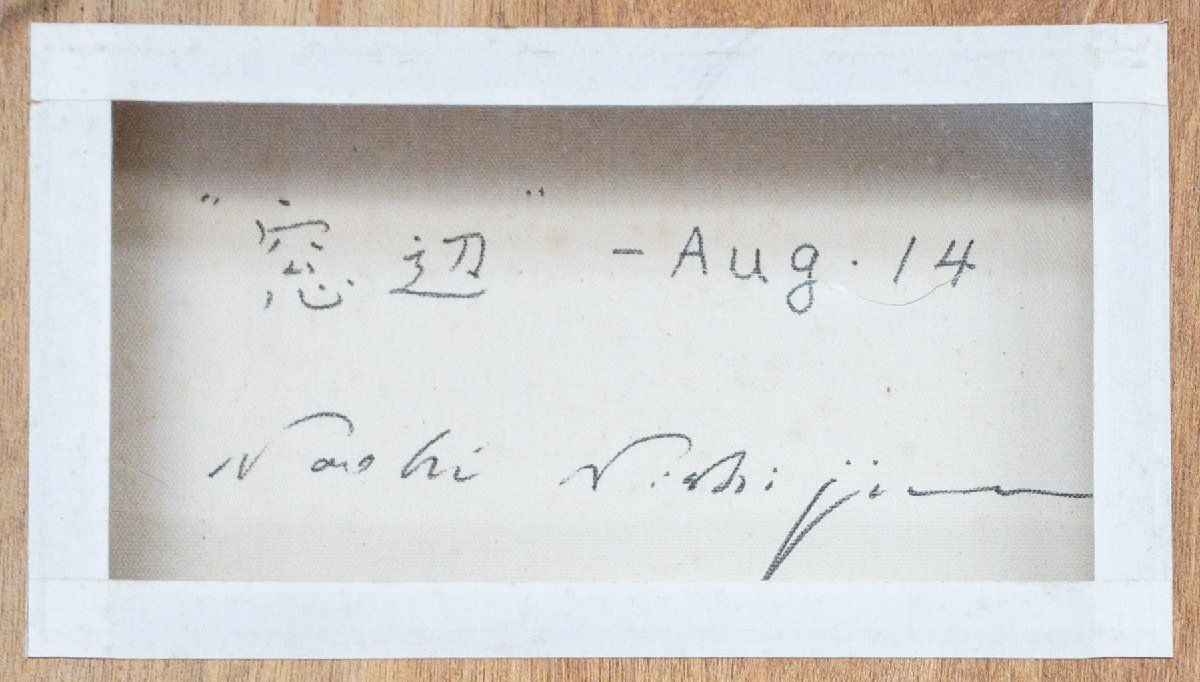 "窓辺" - Aug. 14
Naoki Nishijima